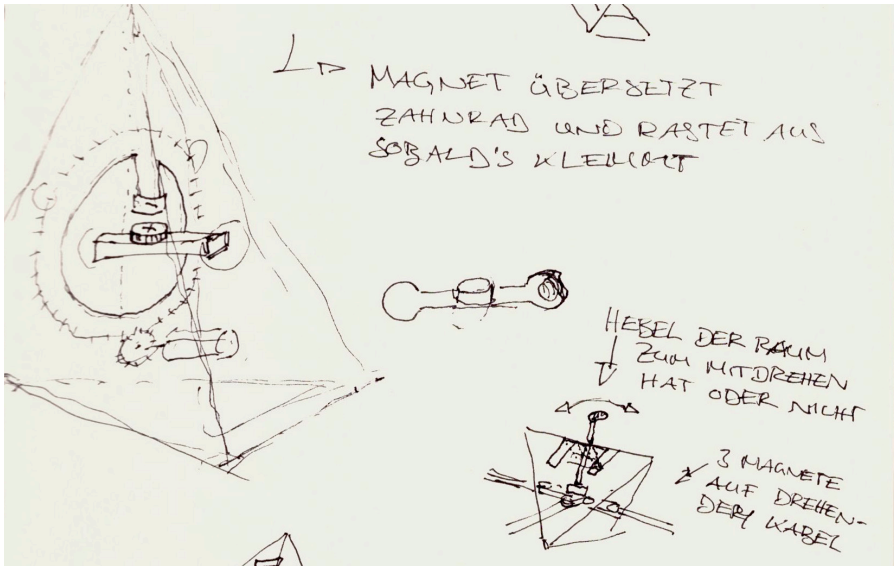 MAGNET ÜBERSETZT
ZAHNRAD UND RASTET AUS
SOBALD'S KLEMMT
HEBEL DER RAUM
ZUM MITDREHEN
HAT ODER NICHT
3 MAGNETE
AUF DREHEN-
DEM KABEL